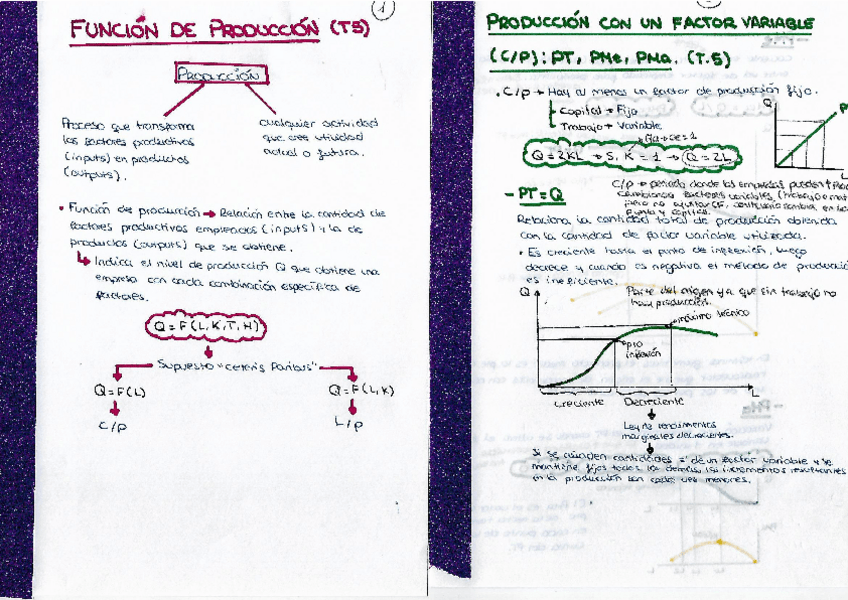 1
FUNCIÓN DE PRODUCCIÓN (T5)
PRODUCCIÓN
Proceso que transforma
los factores productivos
(inputs) en productos
(outputs).
cualquier actividad
que cree utilidad
actual o futura.
• Función de producción → Relación entre la cantidad de
factores productivos empleados (inputs) y la de
productos (outputs) que se obtiene.
↳ Indica el nivel de producción Q que obtiene una
empresa con cada combinación específica de
factores.
Q = F(L, K, T, H)
Supuesto "ceteris Paribus"
Q = F(L)
Q = F(L, K)
C/p
L/p
PRODUCCIÓN CON UN FACTOR VARIABLE
(C/P): PT, PMe, PMa. (T.5)
• C/p → Hay al menos un factor de producción fijo.
Capital → Fijo
Trabajo → Variable
Q = 2KL → S. K = 1 → Q = 2L
Q
L
C/p → periodo donde las empresas pueden
- PT = Q
Relaciona la cantidad total de producción obtenida
con la cantidad de factor variable utilizada.
• Es creciente hasta el punto de inflexión, luego
decrece y cuando es negativa el método de
es ineficiente.
Parte del origen ya que sin trabajo no
hay producción.
Q
máximo técnico
pto
inflexión
L
Creciente Decreciente
Ley de rendimientos
marginales decrecientes.
Si se añaden cantidades = de un factor variable y se
mantiene fijos todos los demás, los incrementos resultantes
en la producción son cada vez menores.